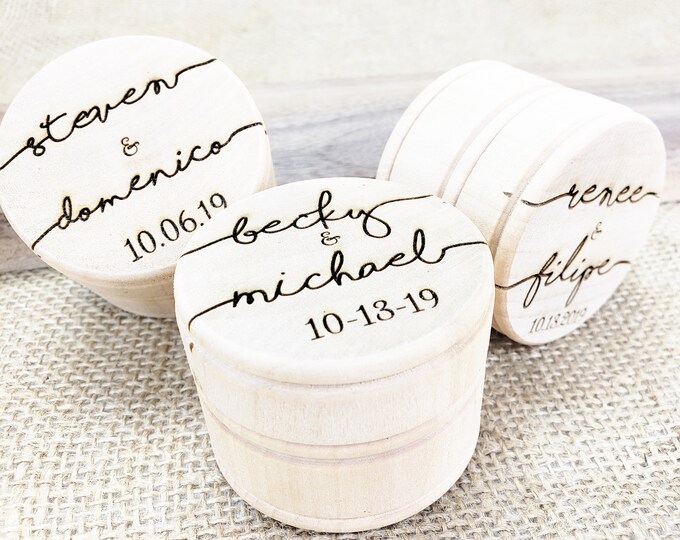 steven
&
domenico
10.06.19
becky
&
michael
10-13-19
renee
&
filipe
10.13.2019